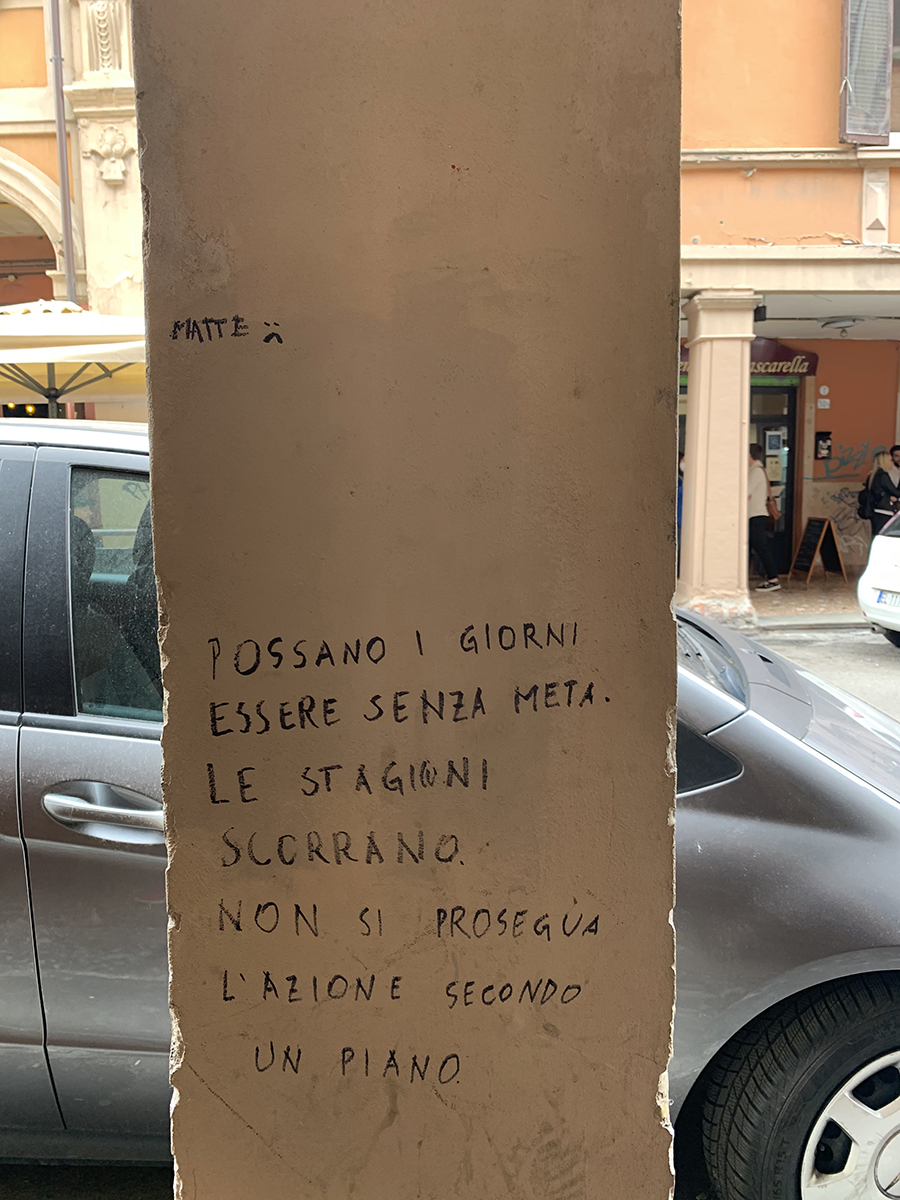 MATTE :(
ascarella
POSSANO I GIORNI
ESSERE SENZA META.
LE STAGIONI
SCORRANO.
NON SI PROSEGÙA
L'AZIONE SECONDO
UN PIANO.